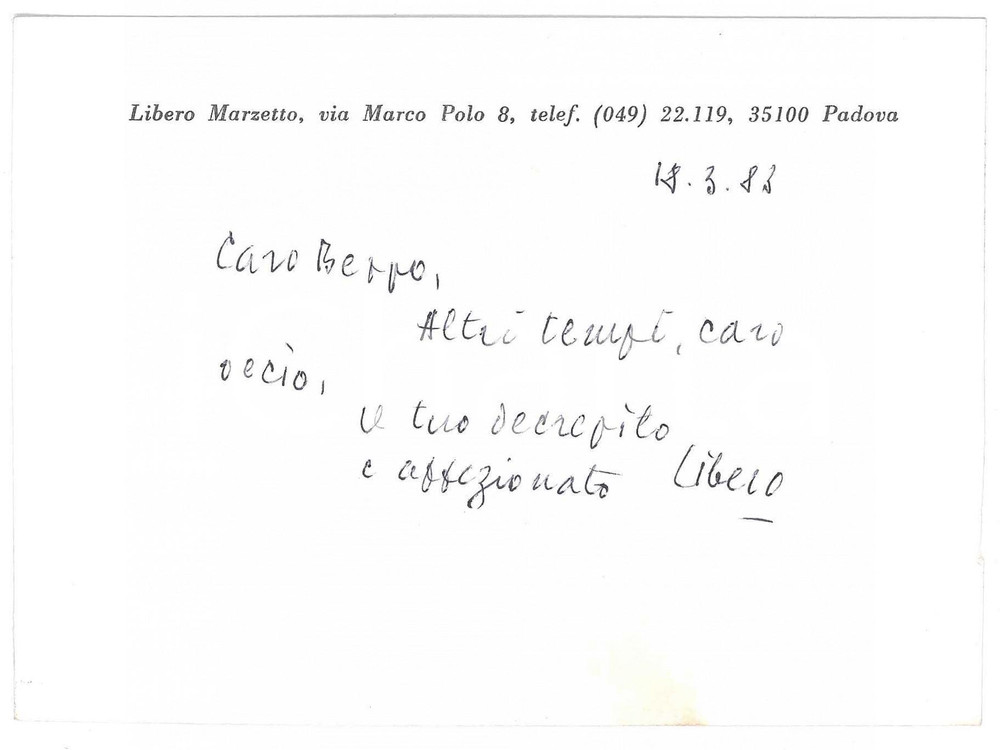 Libero Marzetto, via Marco Polo 8, telef. (049) 22.119, 35100 Padova
18.3.83
Caro Beppo,
Altri tempi, caro
vecio,
il tuo decrepito
e affezionato Libero